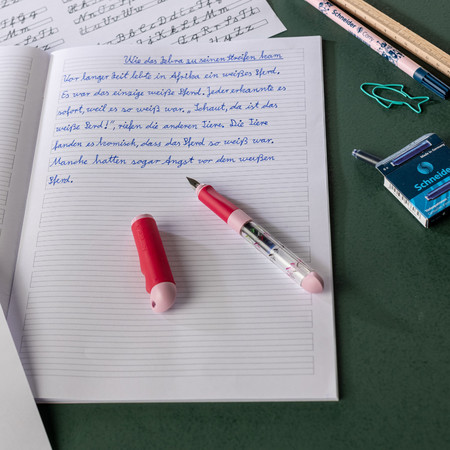 Wie das Zebra zu seinen Streifen kam
Vor langer Zeit lebte in Afrika ein weißes Pferd.
Es war das einzige weiße Pferd. Jeder erkannte es
sofort, weil es so weiß war. „Schaut, da ist das
weiße Pferd!", riefen die anderen Tiere. Die Tiere
fanden es komisch, dass das Pferd so weiß war.
Manche hatten sogar Angst vor dem weißen
Pferd.
Schneider
Schneider